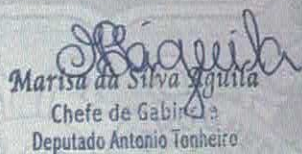 Marisa da Silva Aguila
Chefe de Gabinete
Deputado Antonio Tonheiro